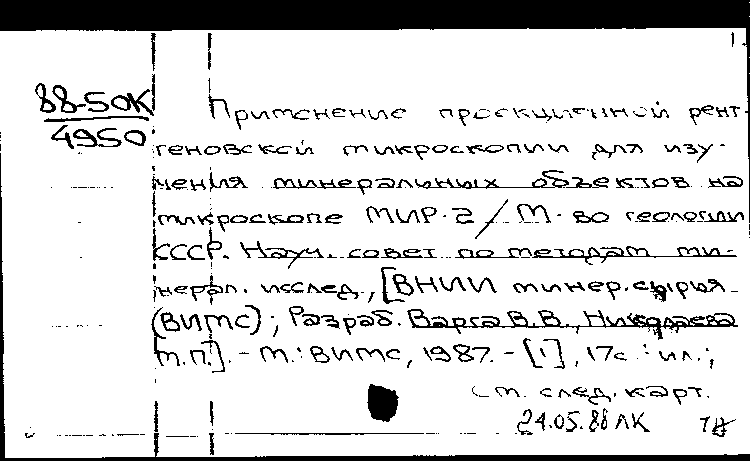 1.
88-50К
4950
Применение проекционной рент-
геновской микроскопии для изу-
чения минеральных объектов на
микроскопе МИР-2/М.-во геологии
СССР. Науч. совет по методам ми-
нерал. исслед., [ВНИИ минер. сырья
(ВИМС); Разраб. Варга В.В., Николаева
Т.П.]. - М.: ВИМС, 1987. - [1], 17с.: ил.;
См. след. карт.
24.05.88 ЛК